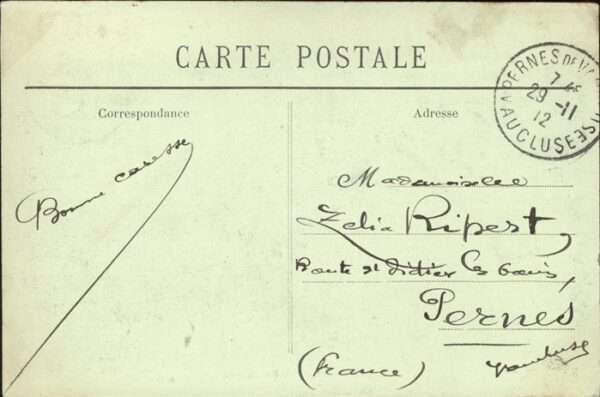 CARTE POSTALE
Correspondance
Adresse
PERNES DE VAUCLUSE
7
29 -11
12
VAUCLUSE
Bonne caresse
Mademoiselle
Zelia Ripert,
Route St Didier les bains,
Pernés
Vaucluse
(France)